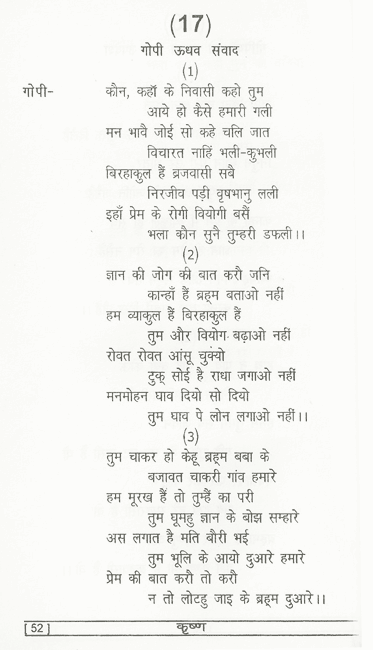 (17)
गोपी ऊधव संवाद
(1)
गोपी- कौन, कहाँ के निवासी कहो तुम
आये हो कैसे हमारी गली
मन भावै जोई सो कहे चलि जात
विचारत नाहिं भली-कुभली
बिरहाकुल हैं ब्रजवासी सबै
निरजीव पड़ी वृषभानु लली
इहाँ प्रेम के रोगी वियोगी बसैं
भला कौन सुनै तुम्हरी डफली।।
(2)
ज्ञान की जोग की बात करौ जनि
कान्हाँ हैं ब्रह्म बताओ नहीं
हम व्याकुल हैं बिरहाकुल हैं
तुम और वियोग बढ़ाओ नहीं
रोवत रोवत आंसू चुक्यो
टुक् सोई है राधा जगाओ नहीं
मनमोहन घाव दियो सो दियो
तुम घाव पे लोन लगाओ नहीं।।
(3)
तुम चाकर हो केहू ब्रह्म बबा के
बजावत चाकरी गांव हमारे
हम मूरख हैं तो तुम्हैं का परी
तुम घूमहु ज्ञान के बोझ सम्हारे
अस लगात है मति बौरी भई
तुम भूलि के आयो दुआरे हमारे
प्रेम की बात करौ तो करौ
न तो लोटहु जाइ के ब्रह्म दुआरे।।
[52] कृष्ण